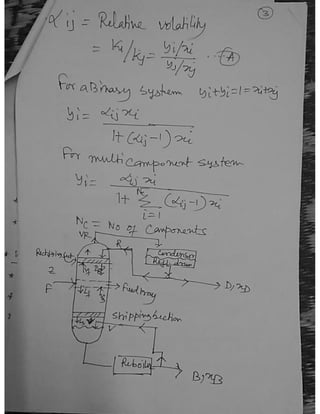 ③
αij = Relative volatility
= Ki/Kj = yi/xi / yj/xj ...(A)
For a Binary system yi+yj=1=xi+xj
yi = αij xi / 1+(αij-1)xi
For multicomponent system
yi = αij xi / 1+ Nc Σ i=1 (αij-1)xi
Nc = No of Components
VR
R
Condensor
Reflux drum
2
F
Feed tray
D, xD
stripping Section
V
Reboiler
B, xB